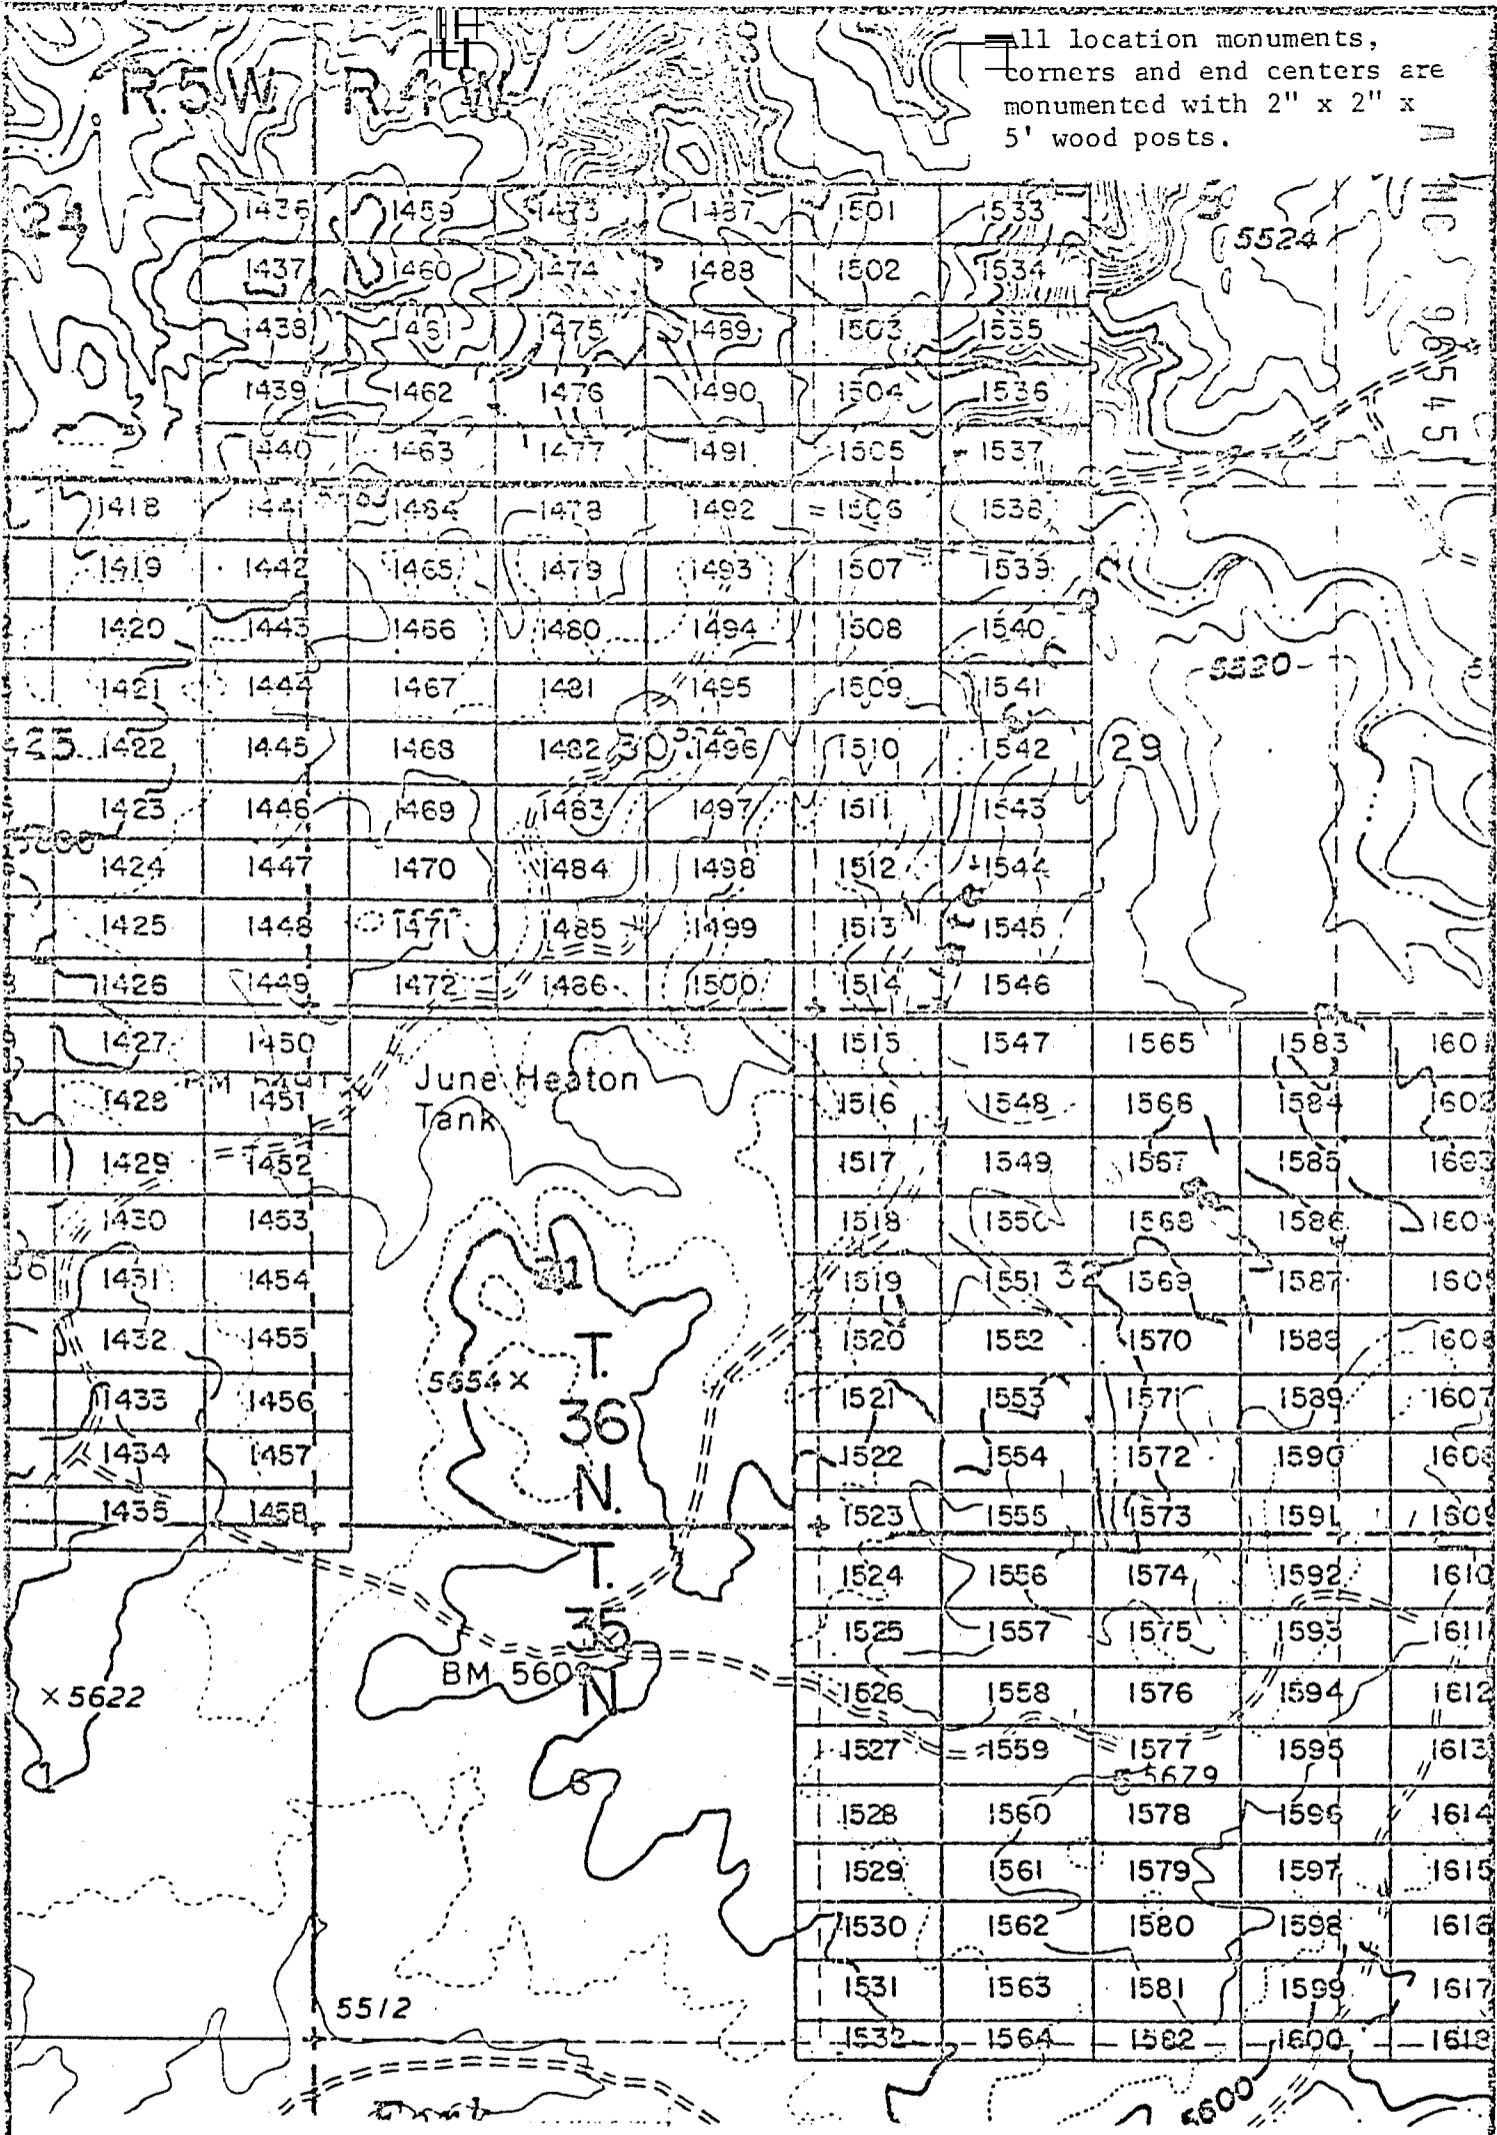 All location monuments,
corners and end centers are
monumented with 2" x 2" x
5' wood posts.
R.5W R.4W
A MC 96545
24
5524
1436 1459 1473 1487 1501 1533
1437 1460 1474 1488 1502 1534
1438 1461 1475 1489 1503 1535
1439 1462 1476 1490 1504 1536
1440 1463 1477 1491 1505 1537
1418 1441 1464 1478 1492 1506 1538
1419 1442 1465 1479 1493 1507 1539
1420 1443 1466 1480 1494 1508 1540
5520
1421 1444 1467 1481 1495 1509 1541
25 1422 1445 1468 1482 30 1496 1510 1542 29
1423 1446 1469 1483 1497 1511 1543
5200
1424 1447 1470 1484 1498 1512 1544
1425 1448 1471 1485 1499 1513 1545
1426 1449 1472 1486 1500 1514 1546
1427 1450 1515 1547 1565 1583 1601
BM 5491
June Heaton
Tank
1428 1451 1516 1548 1566 1584 1602
1429 1452 1517 1549 1567 1585 1603
1430 1453 1518 1550 1568 1586 160
36 1431 1454 31 1519 1551 32 1569 1587 160
1432 1455 1520 1552 1570 1588 1606
T.
36
N.
5654
1433 1456 1521 1553 1571 1589 1607
1434 1457 1522 1554 1572 1590 1608
1435 1458 1523 1555 1573 1591 1609
T.
35
N
1524 1556 1574 1592 1610
1525 1557 1575 1593 1611
BM 560
5622
1526 1558 1576 1594 1612
1527 1559 1577 1595 1613
1 6 5 5679
1528 1560 1578 1596 1614
1529 1561 1579 1597 1615
1530 1562 1580 1598 1616
1531 1563 1581 1599 1617
5512
1532 1564 1582 1600 1618
5600